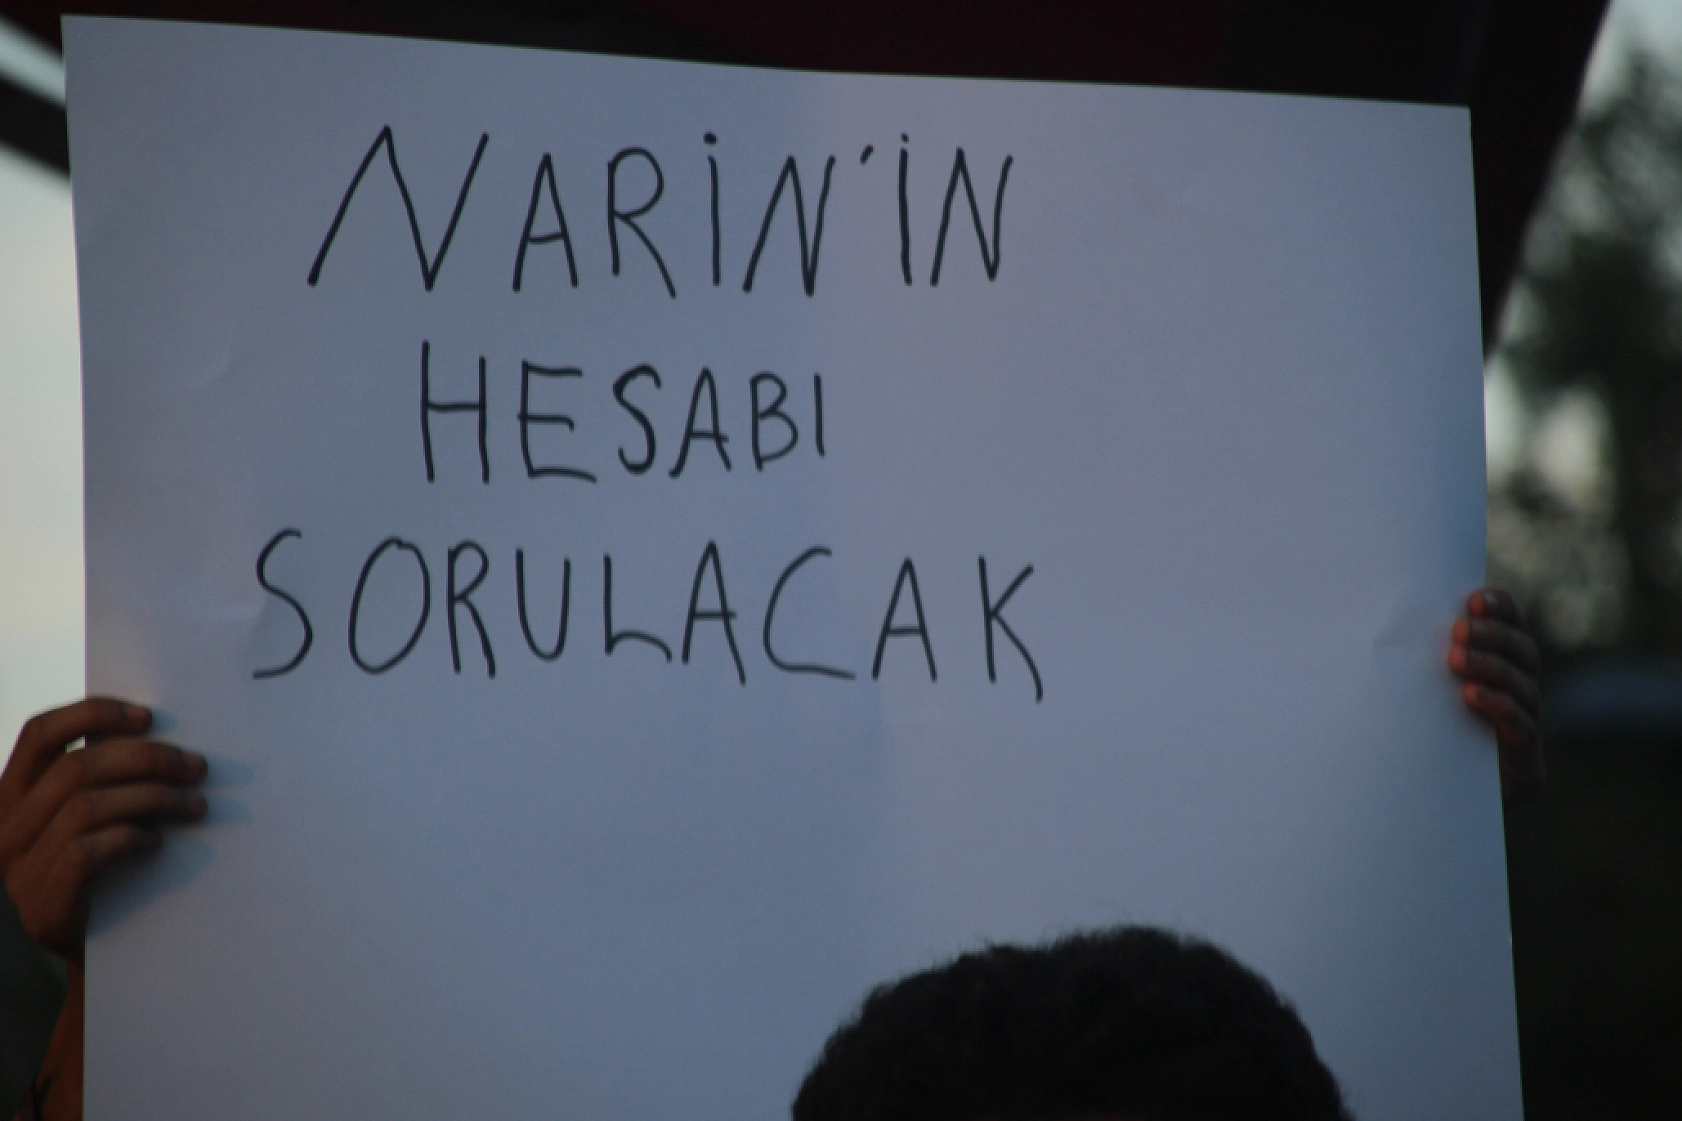 NARİN'İN
HESABI
SORULACAK